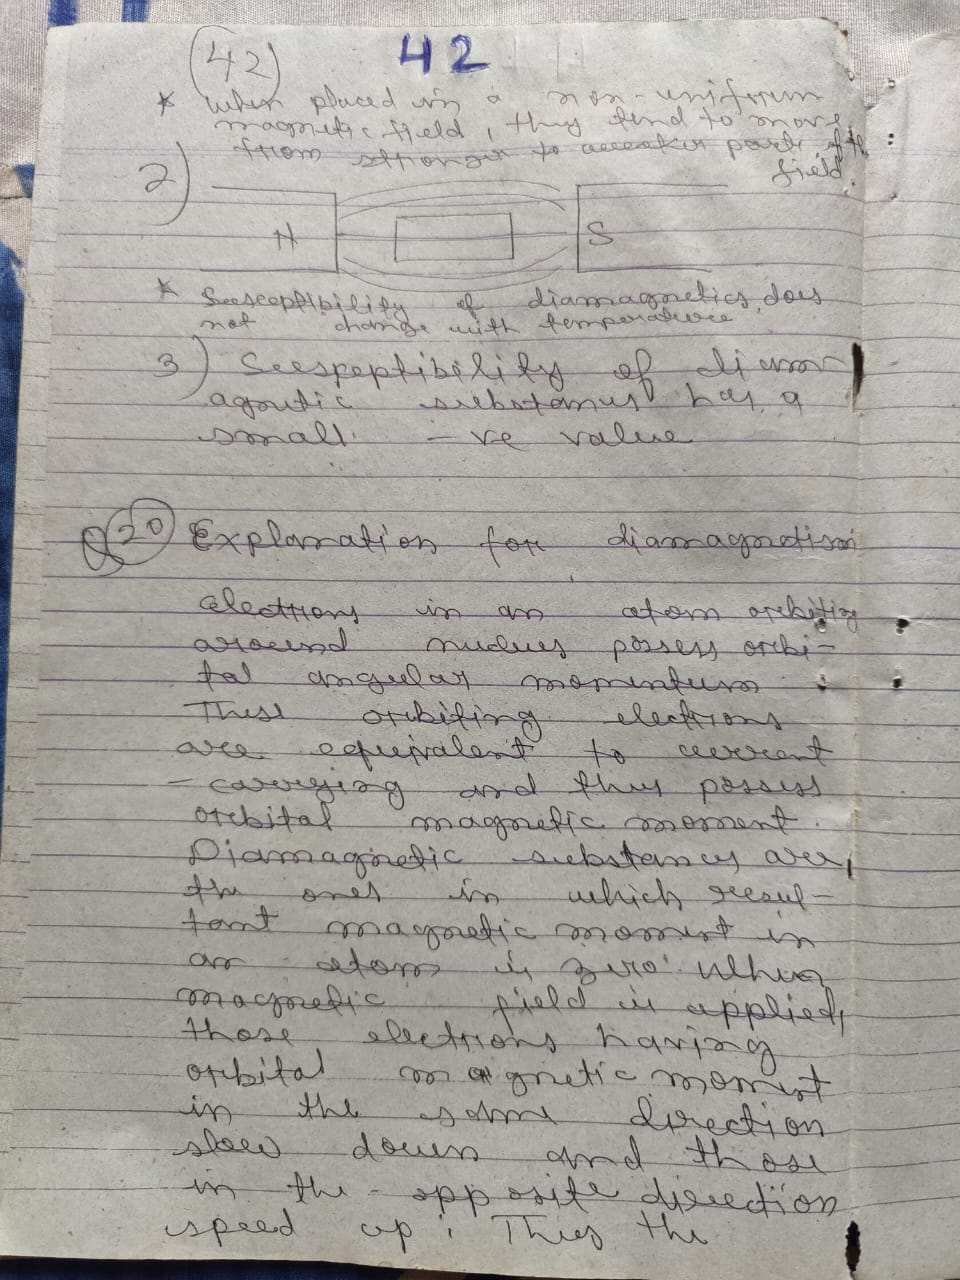 (42) 42
* when placed in a non-uniform
magnetic field, they tend to move
from stronger to weaker parts of the
field.
2)
N S
* Suseceptibility of diamagnetics does
not change with temperature.
3) Seespeptibility of diam
agnetic substances has a
small -ve value
Q20 Explanation for diamagnetism
electrons in an atom orbiting
around nucleus possess orbi-
tal angular momentum.
These orbiting electrons
are equivalent to current
-carrying and thus possess
orbital magnetic moment.
Diamagnetic substances are,
the ones in which resul-
tant magnetic moment in
an atom is zero. When
magnetic field is applied,
those electrons having
orbital magnetic moment
in the same direction
slow down and those
in the opposite direction
speed up. Thus the